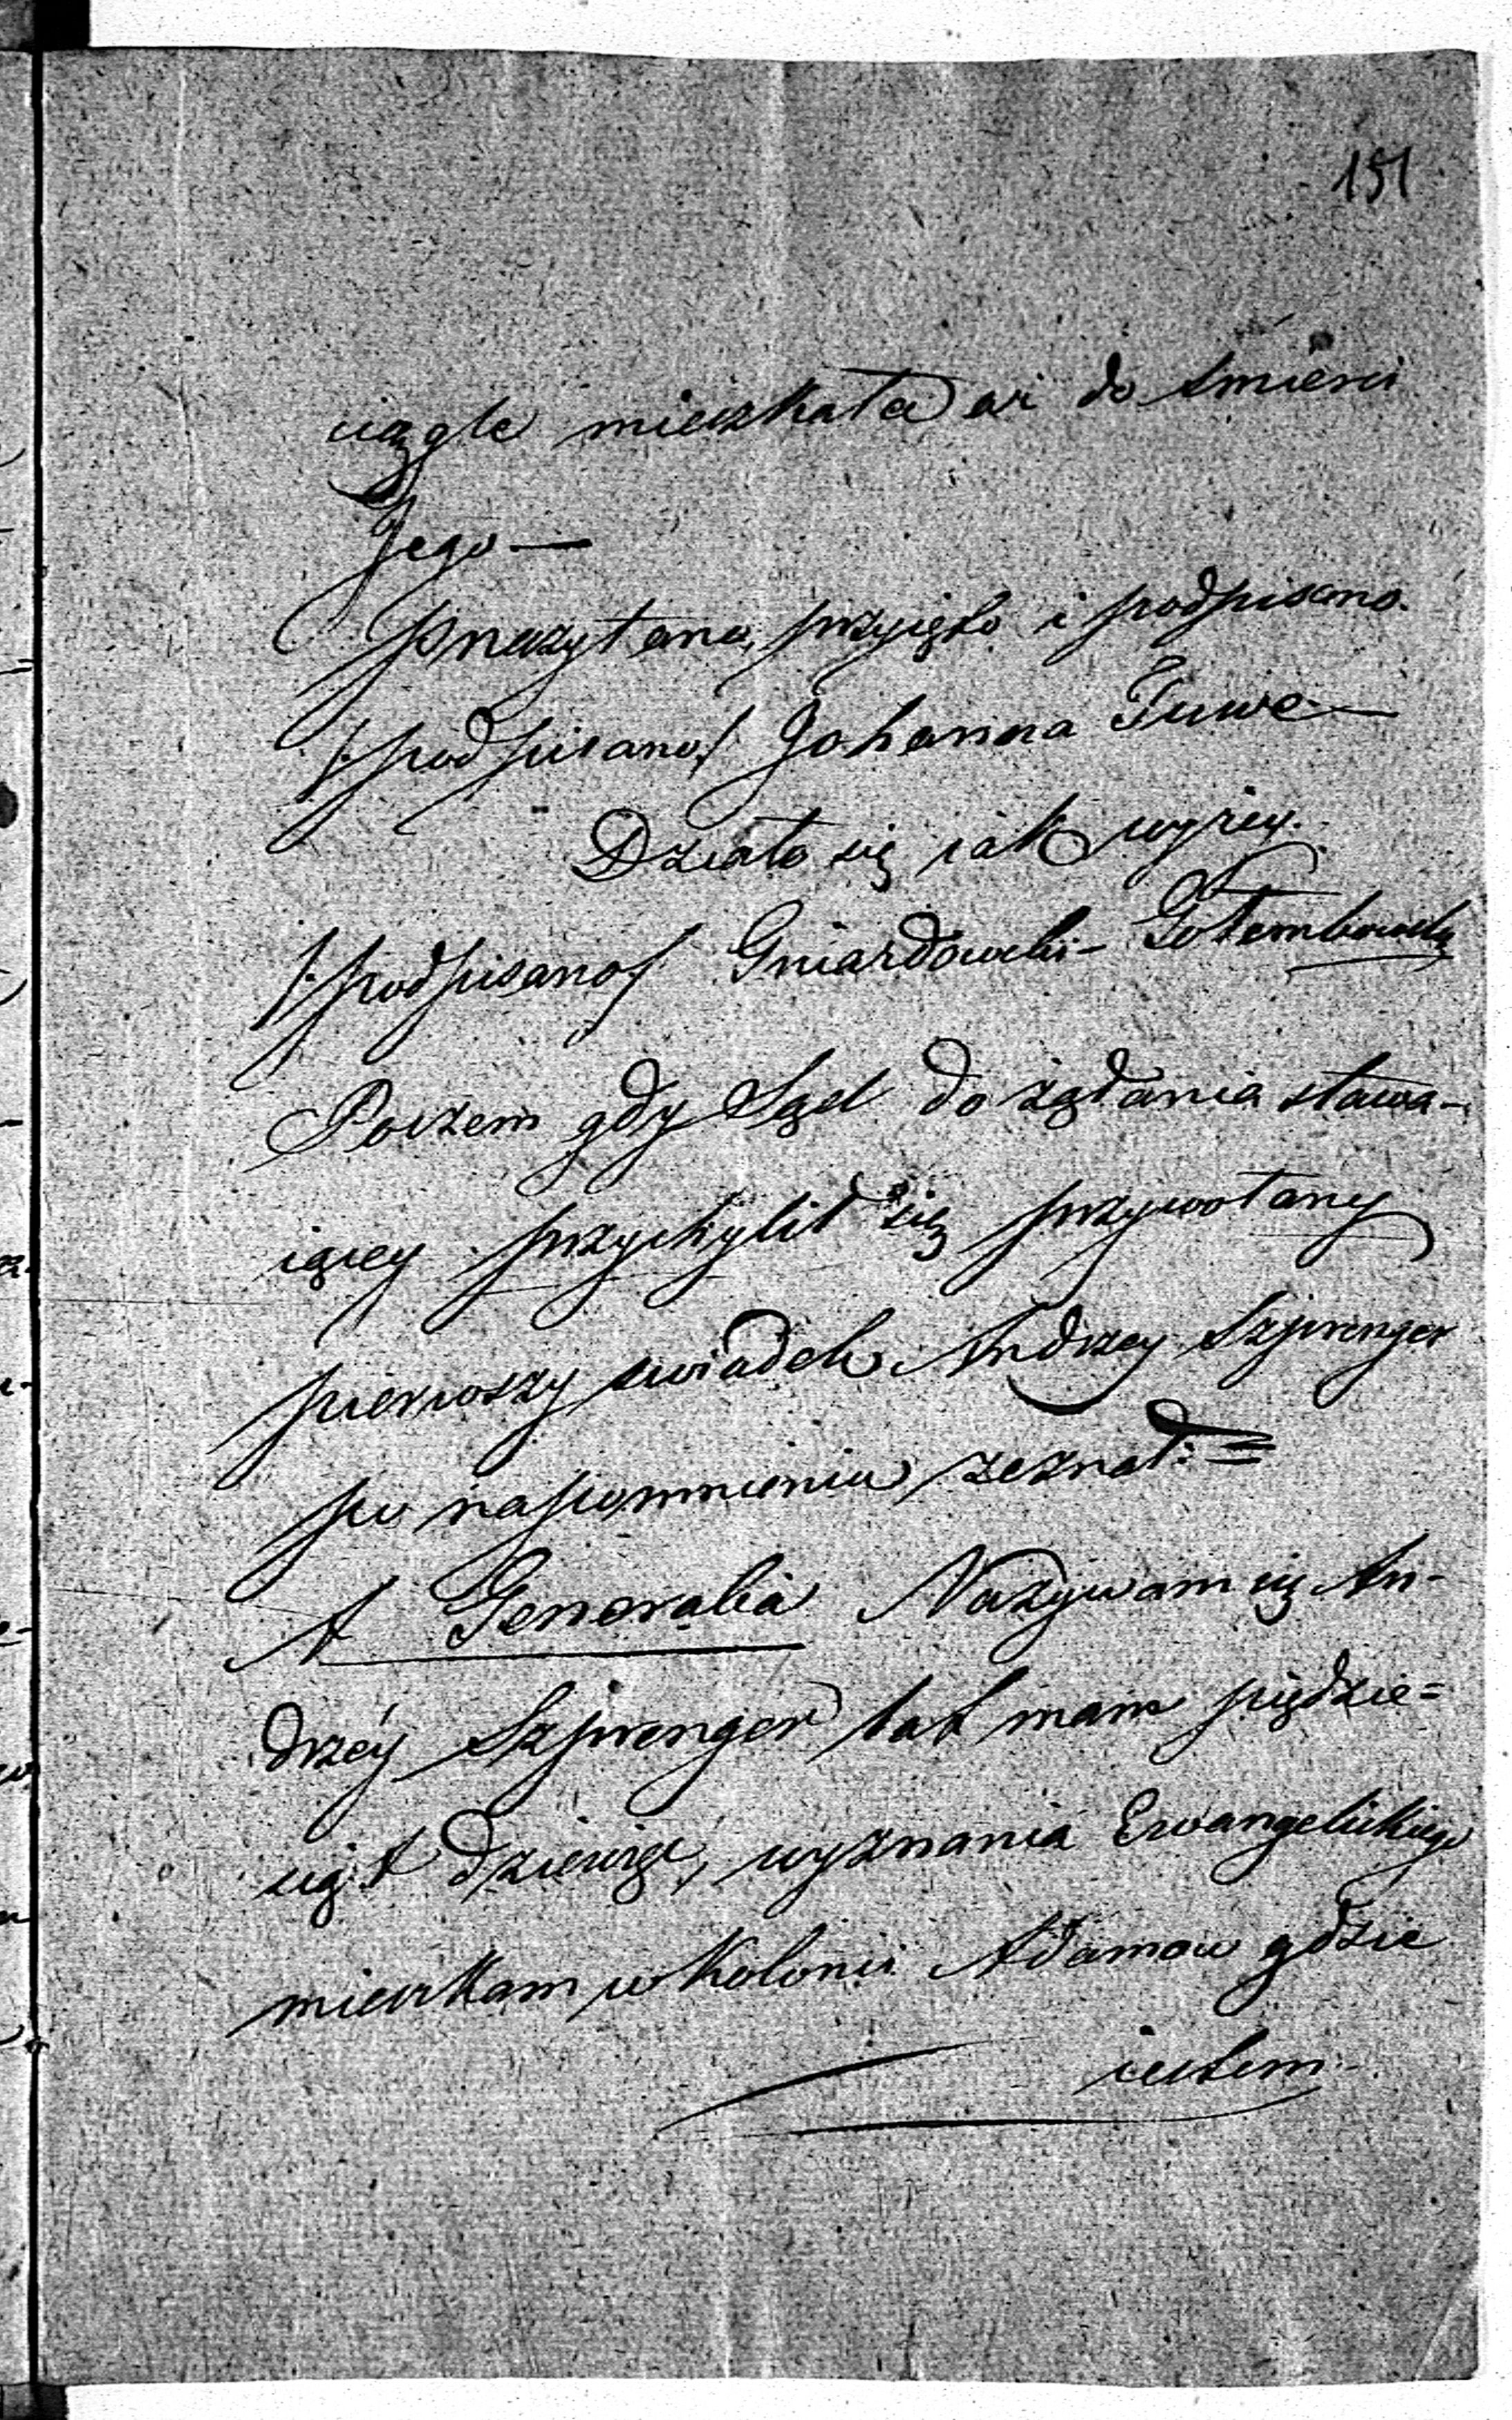 151
ciągle mieszkała aż do śmierci
Jego —
Przeczytano, przyięto i podpisano.
/:podpisano/ Johanna Tuwe —
Działo się iak wyżey.
/:podpisano/ Gniazdowski - Gołembowski
Poczem gdy Sąd do żądania stawa-
iącey przychylił się przywołany
pierwszy świadek Andrzey Szprenger
po napomnieniu zeznał: =
A Generalia Nazywam się An-
drzéy Szprenger lat mam piędzie=
siąt dziewięć, wyznania Ewangelickiego
mieszkam w Kolonii Adamow gdzie
iestem